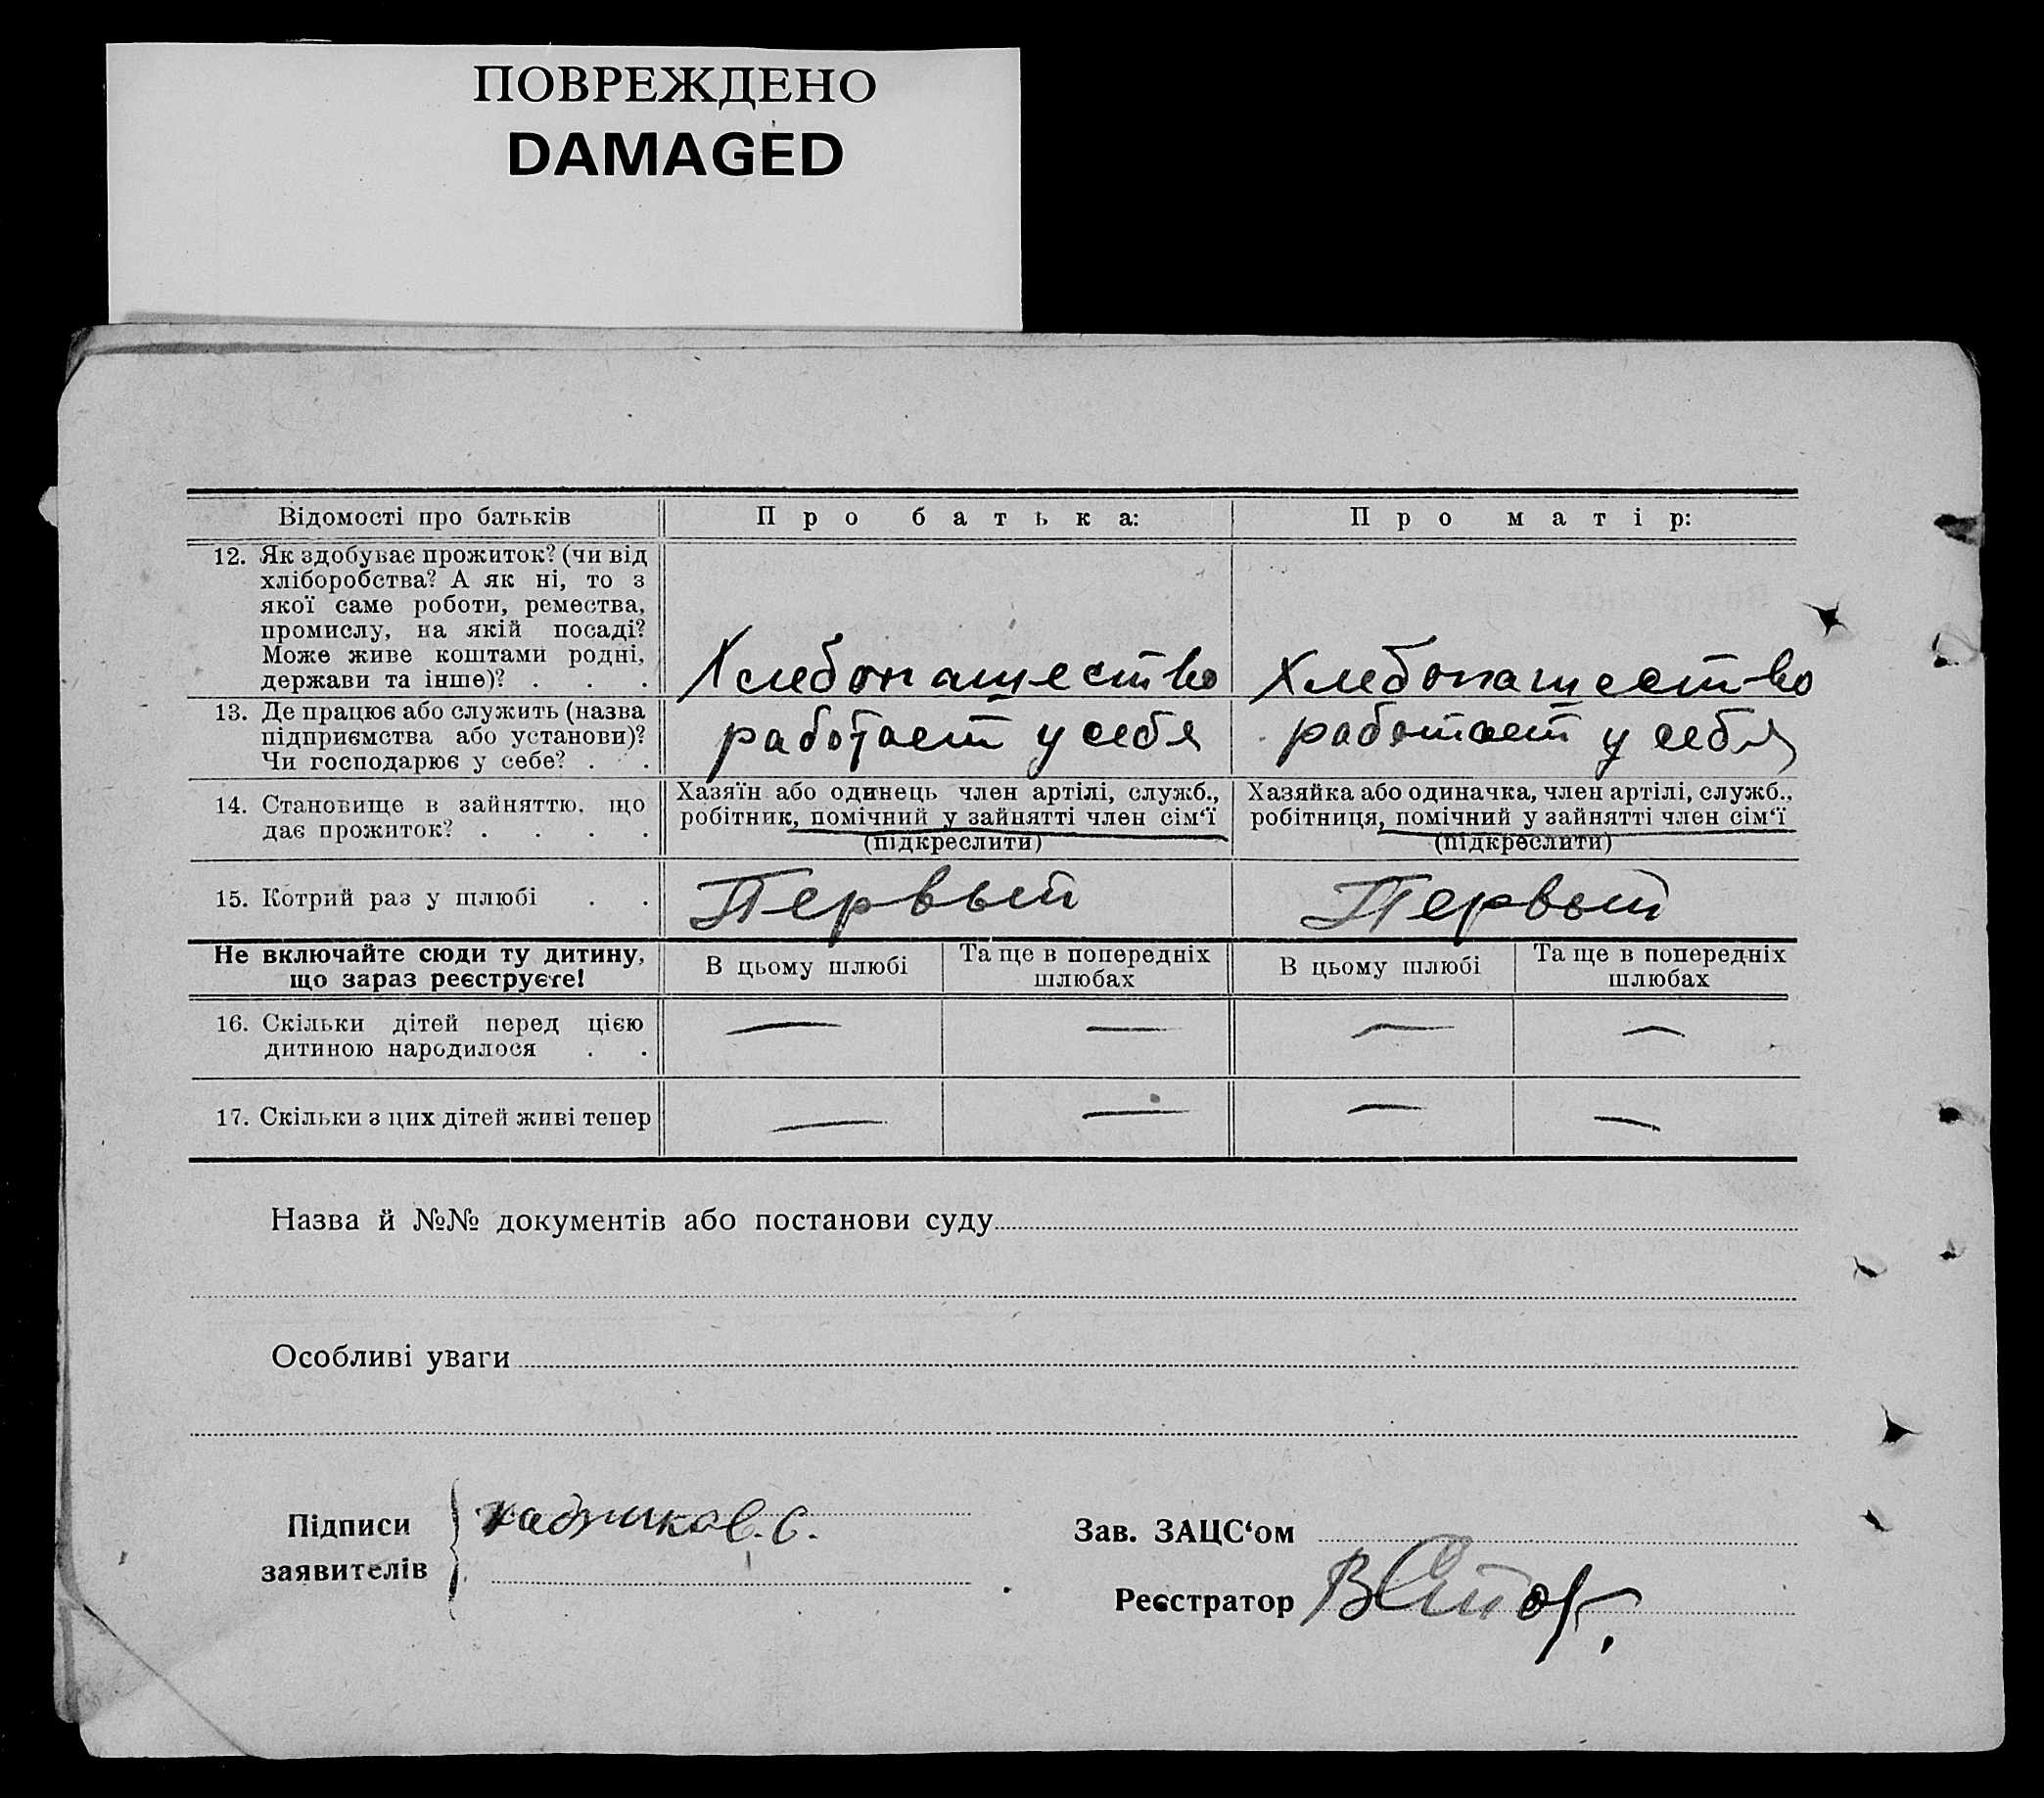 ПОВРЕЖДЕНО
DAMAGED
Відомості про батьків
Про батька:
Про матір:
12. Як здобуває прожиток? (чи від
хліборобства? А як ні, то з
якої саме роботи, ремества,
промислу, на якій посаді?
Може живе коштами родні,
держави та інше)? . . .
Хлебопашество
Хлебопашество
13. Де працює або служить (назва
підприємства або установи)?
Чи господарює у себе? . .
работает у себя
работает у себя
14. Становище в зайняттю, що
дає прожиток? . . . .
Хазяїн або одинець член артілі, служб.,
робітник, помічний у зайнятті член сім‘ї
(підкреслити)
Хазяйка або одиначка, член артілі, служб.,
робітниця, помічний у зайнятті член сім‘ї
(підкреслити)
15. Котрий раз у шлюбі . .
Первый
Первый
Не включайте сюди ту дитину,
що зараз реєструєте!
В цьому шлюбі
Та ще в попередніх
шлюбах
В цьому шлюбі
Та ще в попередніх
шлюбах
16. Скільки дітей перед цією
дитиною народилося . .
— — — —
17. Скільки з цих дітей живі тепер
— — — —
Назва й №№ документів або постанови суду
Особливі уваги
Підписи
заявителів
Зав. ЗАЦС‘ом
Реєстратор